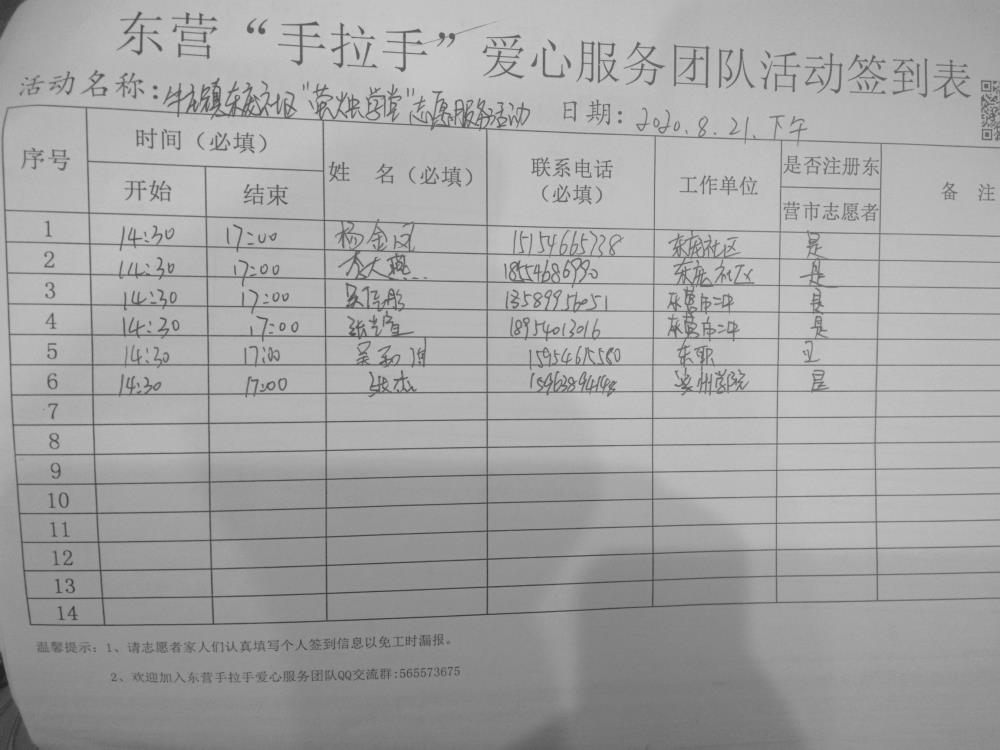 东营“手拉手”爱心服务团队活动签到表
活动名称：牛庄镇东庞社区“萤火虫学堂”志愿服务活动 日期：2020.8.21.下午
序号 时间（必填） 姓 名（必填） 联系电话（必填） 工作单位 是否注册东营市志愿者 备 注
开始 结束
1 14:30 17:00 杨金凤 15154665728 东庞社区 是
2 14:30 17:00 李大燕 东庞社区 是
3 14:30 17:00 东营市二中 是
4 14:30 17:00 18954013016 东营市二中 是
5 14:30 17:00 15954615580 东职
6 14:30 17:00 张杰 滨州学院 是
7
8
9
10
11
12
13
14
温馨提示：1、请志愿者家人们认真填写个人签到信息以免工时漏报。
2、欢迎加入东营手拉手爱心服务团队QQ交流群:565573675